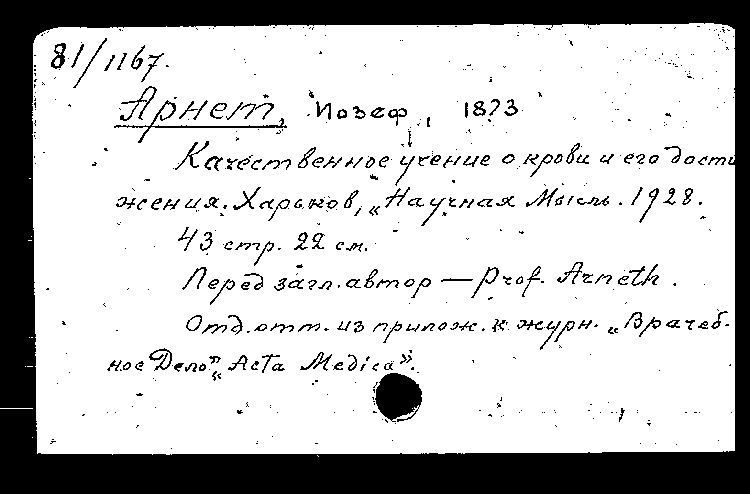 81/1167.
Арнет, Иозеф, 1873
Качественное учение о крови и его дости
жения. Харьков, „Научная Мысль. 1928.
43 стр. 22 см.
Перед загл. автор — Prof. Arneth.
Отд. отт. из прилож. к журн. „Врачеб-
ное Дело" „Acta Medica".